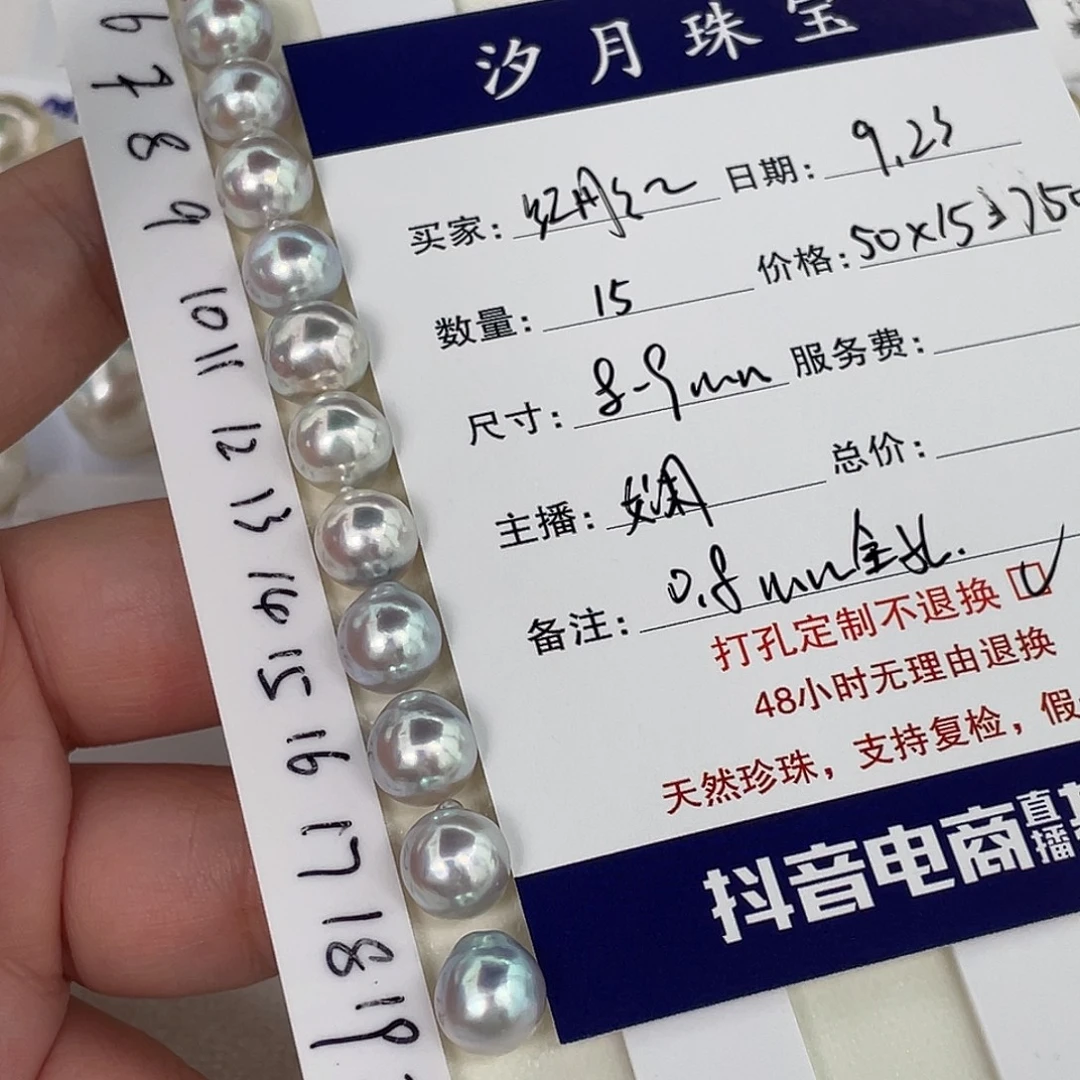 6
7
8
9
10
11
12
13
14
15
16
17
18
19
汐月珠宝
买家:
日期: 9.23
数量: 15
价格: 50×15=750
尺寸: 8-9mm
服务费:
主播: 娴
总价:
备注: 0.8mm全孔.
打孔定制不退换 ✓
48小时无理由退换
天然珍珠，支持复检，假
抖音电商直播